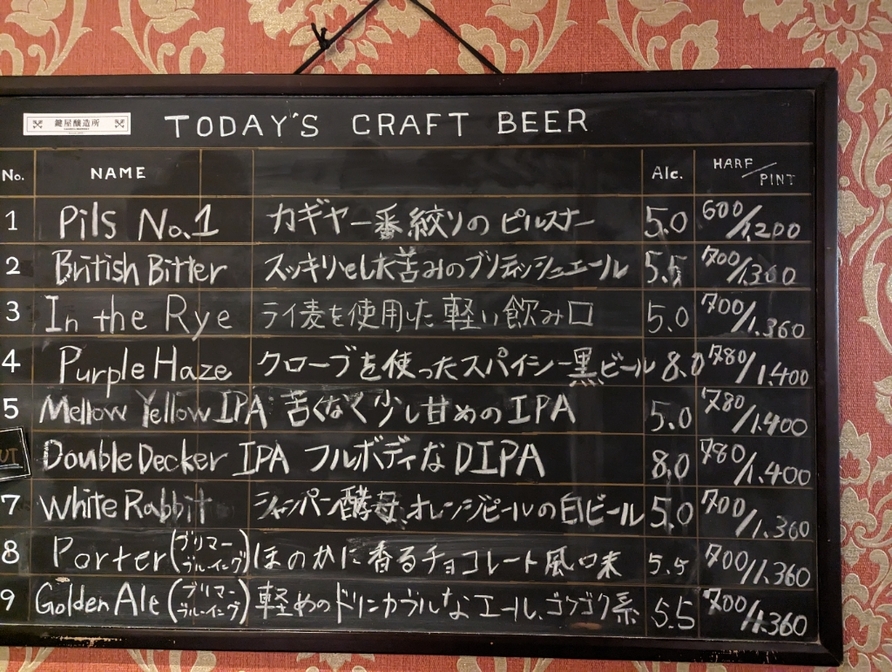 鍵屋醸造所 TODAY'S CRAFT BEER
No. NAME Alc. HARF/PINT
1 Pils No.1 カギヤ一番絞りの ピルスナー 5.0 600/1,200
2 British Bitter スッキリとした苦みのブリティッシュエール 5.5 700/1,360
3 In the Rye ライ麦を使用した軽い飲み口 5.0 700/1,360
4 Purple Haze クローブを使ったスパイシー黒ビール 8.0 780/1,400
5 Mellow Yellow IPA 苦くなく少し甘めのIPA 5.0 780/1,400
UT Double Decker IPA フルボディなDIPA 8.0 780/1,400
7 White Rabbit シャンパー酵母、オレンジピールの白ビール 5.0 700/1,360
8 Porter (ブリマーブルーイング) ほのかに香るチョコレート風味 5.5 700/1,360
9 Golden Ale (ブリマーブルーイング) 軽めのドリンカブルなエール、ゴクゴク系 5.5 700/1,360